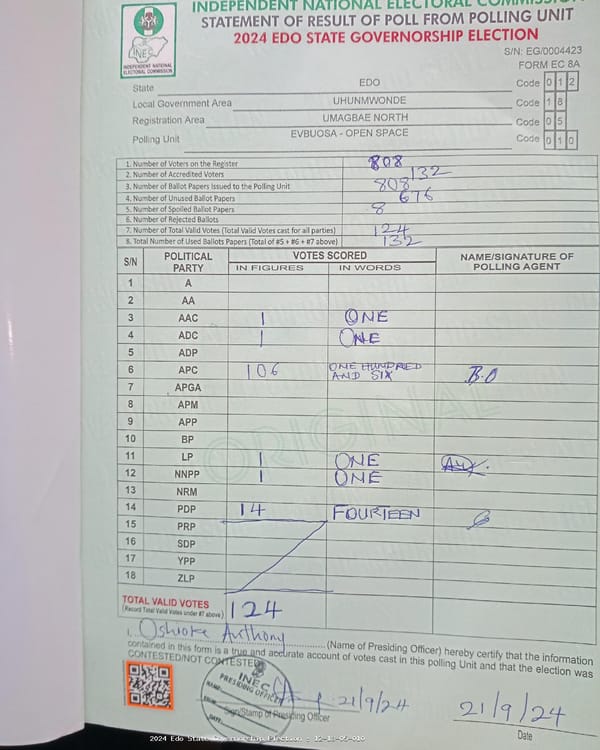 INDEPENDENT NATIONAL ELECTORAL COMMISSION
STATEMENT OF RESULT OF POLL FROM POLLING UNIT
2024 EDO STATE GOVERNORSHIP ELECTION
INEC
INDEPENDENT NATIONAL
ELECTORAL COMMISSION
S/N: EG/0004423
FORM EC 8A
State EDO Code 0 1 2
Local Government Area UHUNMWONDE Code 1 8
Registration Area UMAGBAE NORTH Code 0 5
Polling Unit EVBUOSA - OPEN SPACE Code 0 1 0
1. Number of Voters on the Register 808
2. Number of Accredited Voters 132
3. Number of Ballot Papers Issued to the Polling Unit 808
4. Number of Unused Ballot Papers 676
5. Number of Spoiled Ballot Papers 8
6. Number of Rejected Ballots
7. Number of Total Valid Votes (Total Valid Votes cast for all parties) 124
8. Total Number of Used Ballots Papers (Total of #5 + #6 + #7 above) 132
S/N POLITICAL PARTY VOTES SCORED NAME/SIGNATURE OF POLLING AGENT
IN FIGURES IN WORDS
1 A
2 AA
3 AAC 1 ONE
4 ADC 1 ONE
5 ADP
6 APC 106 ONE HUNDRED AND SIX B.O
7 APGA
8 APM
9 APP
10 BP
11 LP 1 ONE
12 NNPP 1 ONE
13 NRM
14 PDP 14 FOURTEEN
15 PRP
16 SDP
17 YPP
18 ZLP
ORIGINAL
TOTAL VALID VOTES 124
(Record Total Valid Votes under #7 above)
I, Anthony (Name of Presiding Officer) hereby certify that the information
contained in this form is a true and accurate account of votes cast in this polling Unit and that the election was
CONTESTED/NOT CONTESTED
INEC
PRESIDING OFFICER
NAME
DATE
21/9/24
21/9/24
Sign/Stamp of Presiding Officer
Date
2024 Edo State Governorship Election - 12-18-05-010